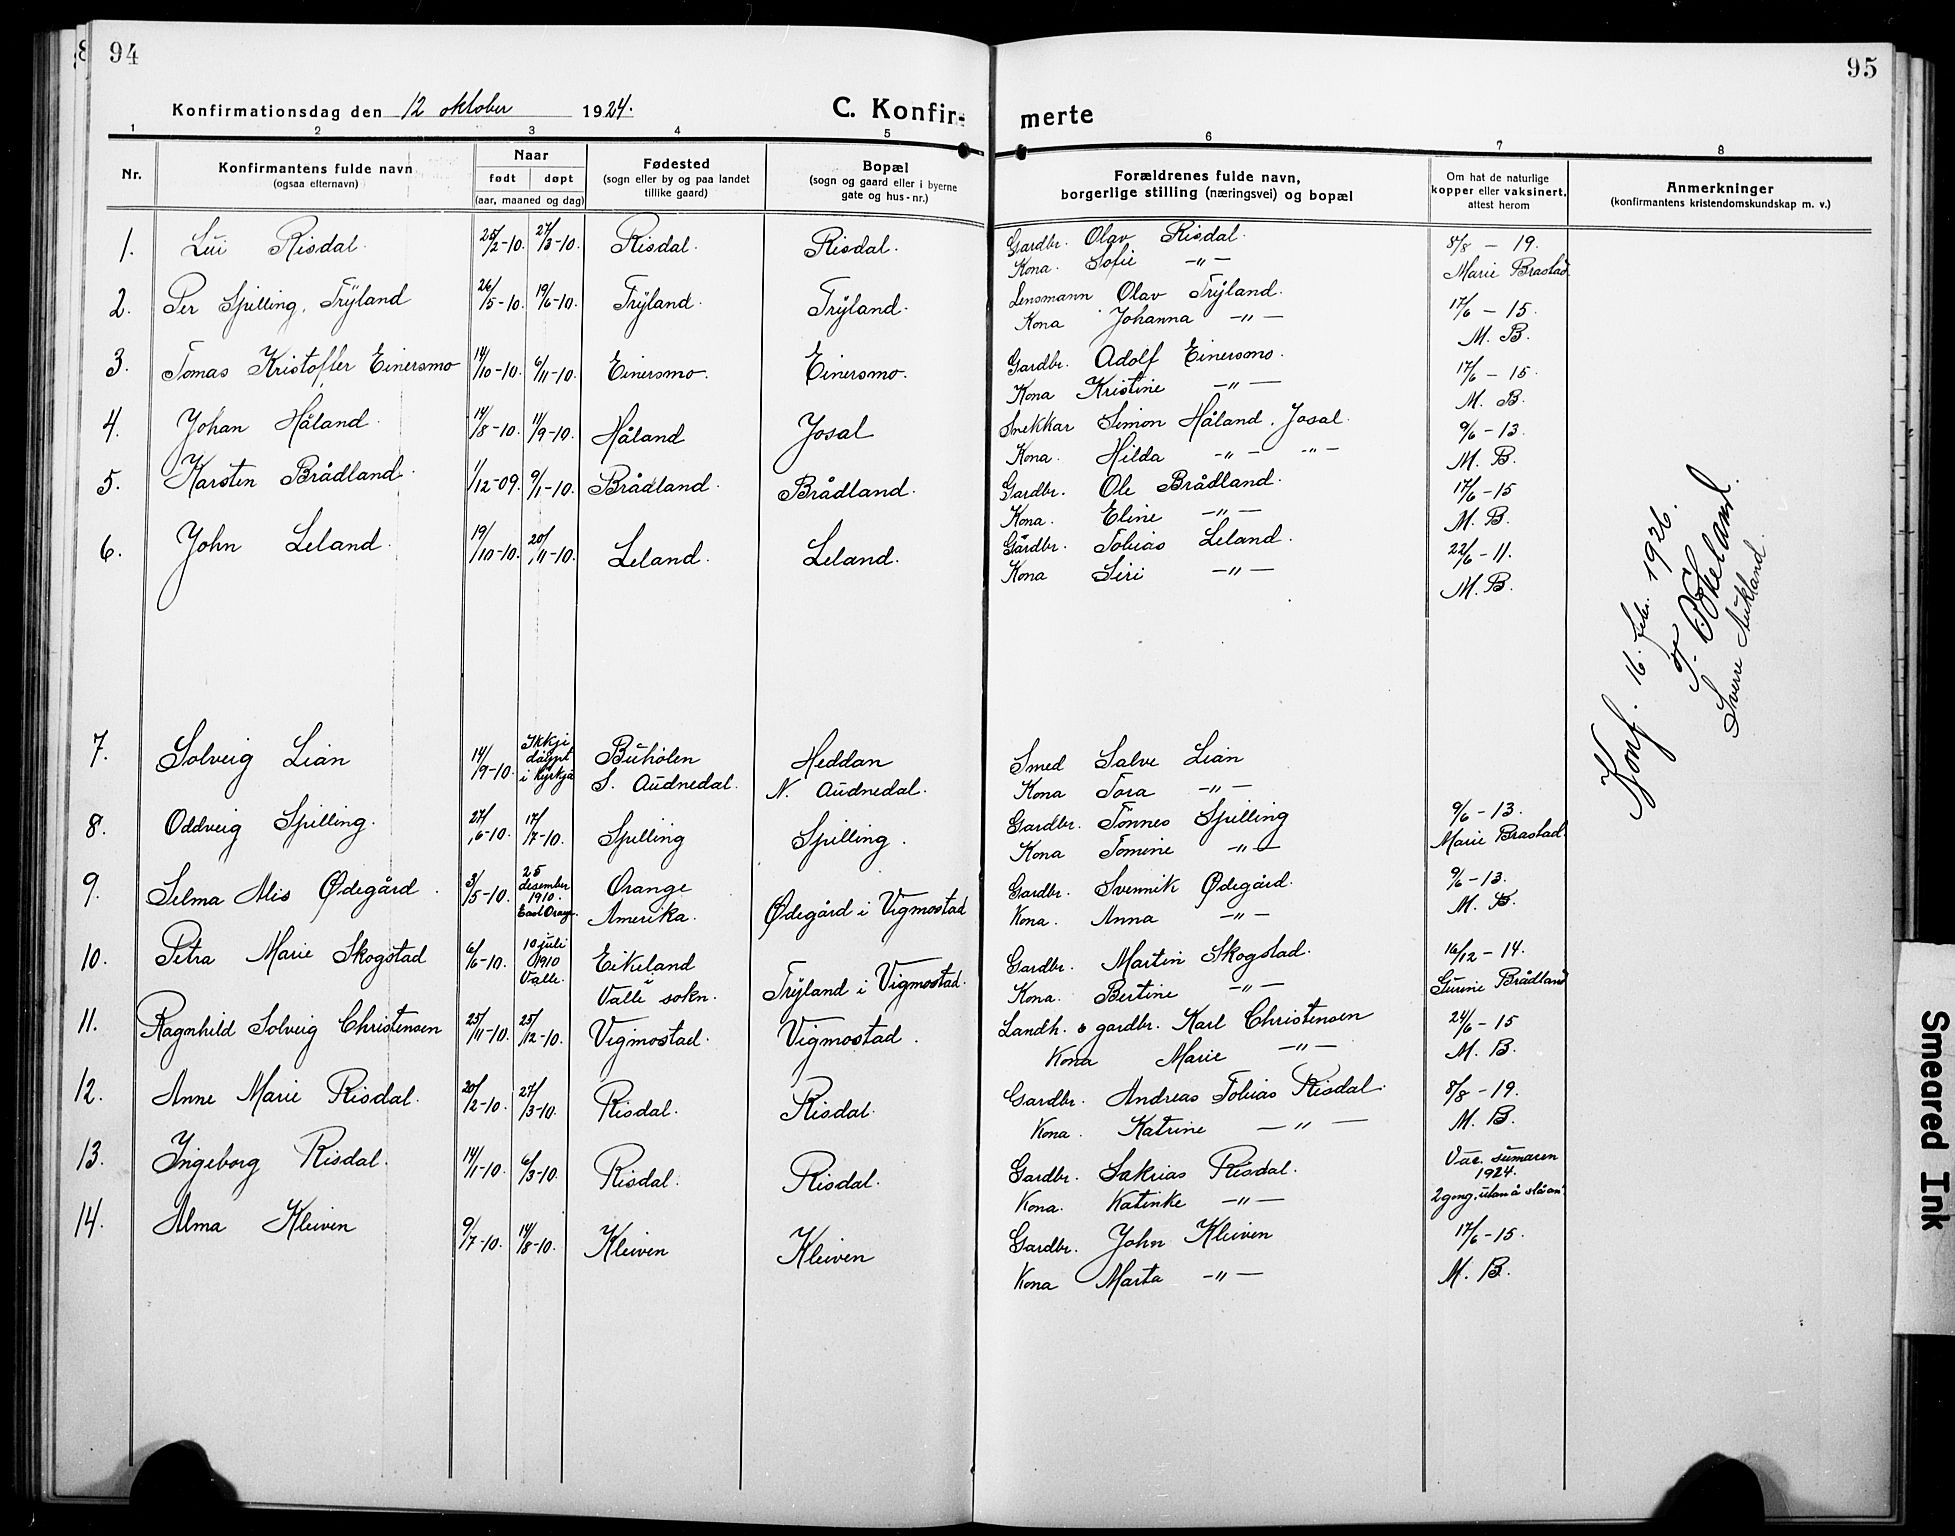 94
Konfirmationsdag den 12 oktober 1924.
C. Konfir-
1 2 3 4 5
Nr.
Konfirmantens fulde navn
(ogsaa efternavn)
Naar
født døpt
(aar, maaned og dag)
Fødested
(sogn eller by og paa landet
tillike gaard)
Bopæl
(sogn og gaard eller i byerne
gate og hus-nr.)
1. Lui Risdal. 25/2-10. 27/3-10. Risdal. Risdal.
2. Per Spilling, Trÿland 26/5-10. 19/6-10. Trÿland. Trÿland.
3. Tomas Kristoffer Einersmo 14/10-10. 6/11-10. Einersmo. Einersmo.
4. Johan Håland. 14/8-10. 11/9-10. Håland Josal
5. Karsten Brådland. 1/12-09. 9/1-10. Brådland. Brådland.
6. John Leland. 19/10-10. 20/11-10. Leland. Leland.
7. Solveig Lian 14/9-10. Ikkji
døypt
i kyrkja
Buhølen
S. Audnedal.
Heddan
N. Audnedal.
8. Oddveig Spilling. 27/6-10. 17/7-10. Spilling Spilling.
9. Selma Alis Ødegård. 3/5-10. 25
desember
1910.
East Orange.
Orange
Amerika.
Ødegård i Vigmostad
10. Petra Marie Skogstad 6/6-10. 10 juli
1910
Valle.
Eikeland
Valle sokn.
Trÿland i Vigmostad.
11. Ragnhild Solveig Christensen 25/11-10. 25/12-10. Vigmostad. Vigmostad.
12. Anne Marie Risdal. 20/2-10. 27/3-10. Risdal. Risdal.
13. Ingeborg Risdal. 14/1-10. 6/3-10. Risdal. Risdal.
14. Alma Kleiven 9/7-10. 14/8-10. Kleiven Kleiven
95
merte
6 7 8
Forældrenes fulde navn,
borgerlige stilling (næringsvei) og bopæl
Om hat de naturlige
kopper eller vaksinert,
attest herom
Anmerkninger
(konfirmantens kristendomskundskap m. v.)
Gardbr. Olav Risdal. 8/8 - 19.
Kona. Sofie -„- Marie Brastad
Lensmann Olav Trÿland. 17/6 - 15.
Kona Johanna -„- M. B.
Gardbr. Adolf Einersmo. 17/6 - 15.
Kona Kristine -„- M. B.
Snekkar Simon Håland, Josal. 9/6 - 13.
Kona. Hilda -„- -„- M. B.
Gardbr. Ole Brådland. 17/6 - 15
Kona. Eline -„- M. B.
Gårdbr. Tobias Leland. 22/6 - 11.
Kona Siri -„- M. B.
Smed Salve Lian
Kona Tora -„-
Gardbr. Tønnes Spilling 9/6 - 13.
Kona Tomine -„- Marie Brastad.
Gardbr. Svennik Ødegård. 9/6 - 13.
Kona. Anna -„- M. B.
Gardbr. Martin Skogstad. 16/12 - 14.
Kona. Bertine -„- Gurine Brådland
Landh. & gardbr. Karl Christensen 24/6 - 15
Kona Marie -„- M. B.
Gardbr. Andreas Tobias Risdal. 8/8 - 19.
Kona. Katrine -„- M. B.
Gardbr. Sakrias Risdal. Vac. sumaren
1924.
Kona. Katinke -„- 2 gong. utan å slå an.
Gardbr. John Kleiven 17/6 - 15.
Kona Marta -„- M. B.
Konf. 16. febr. 1926.
Sverre Aukland.
Smeared Ink